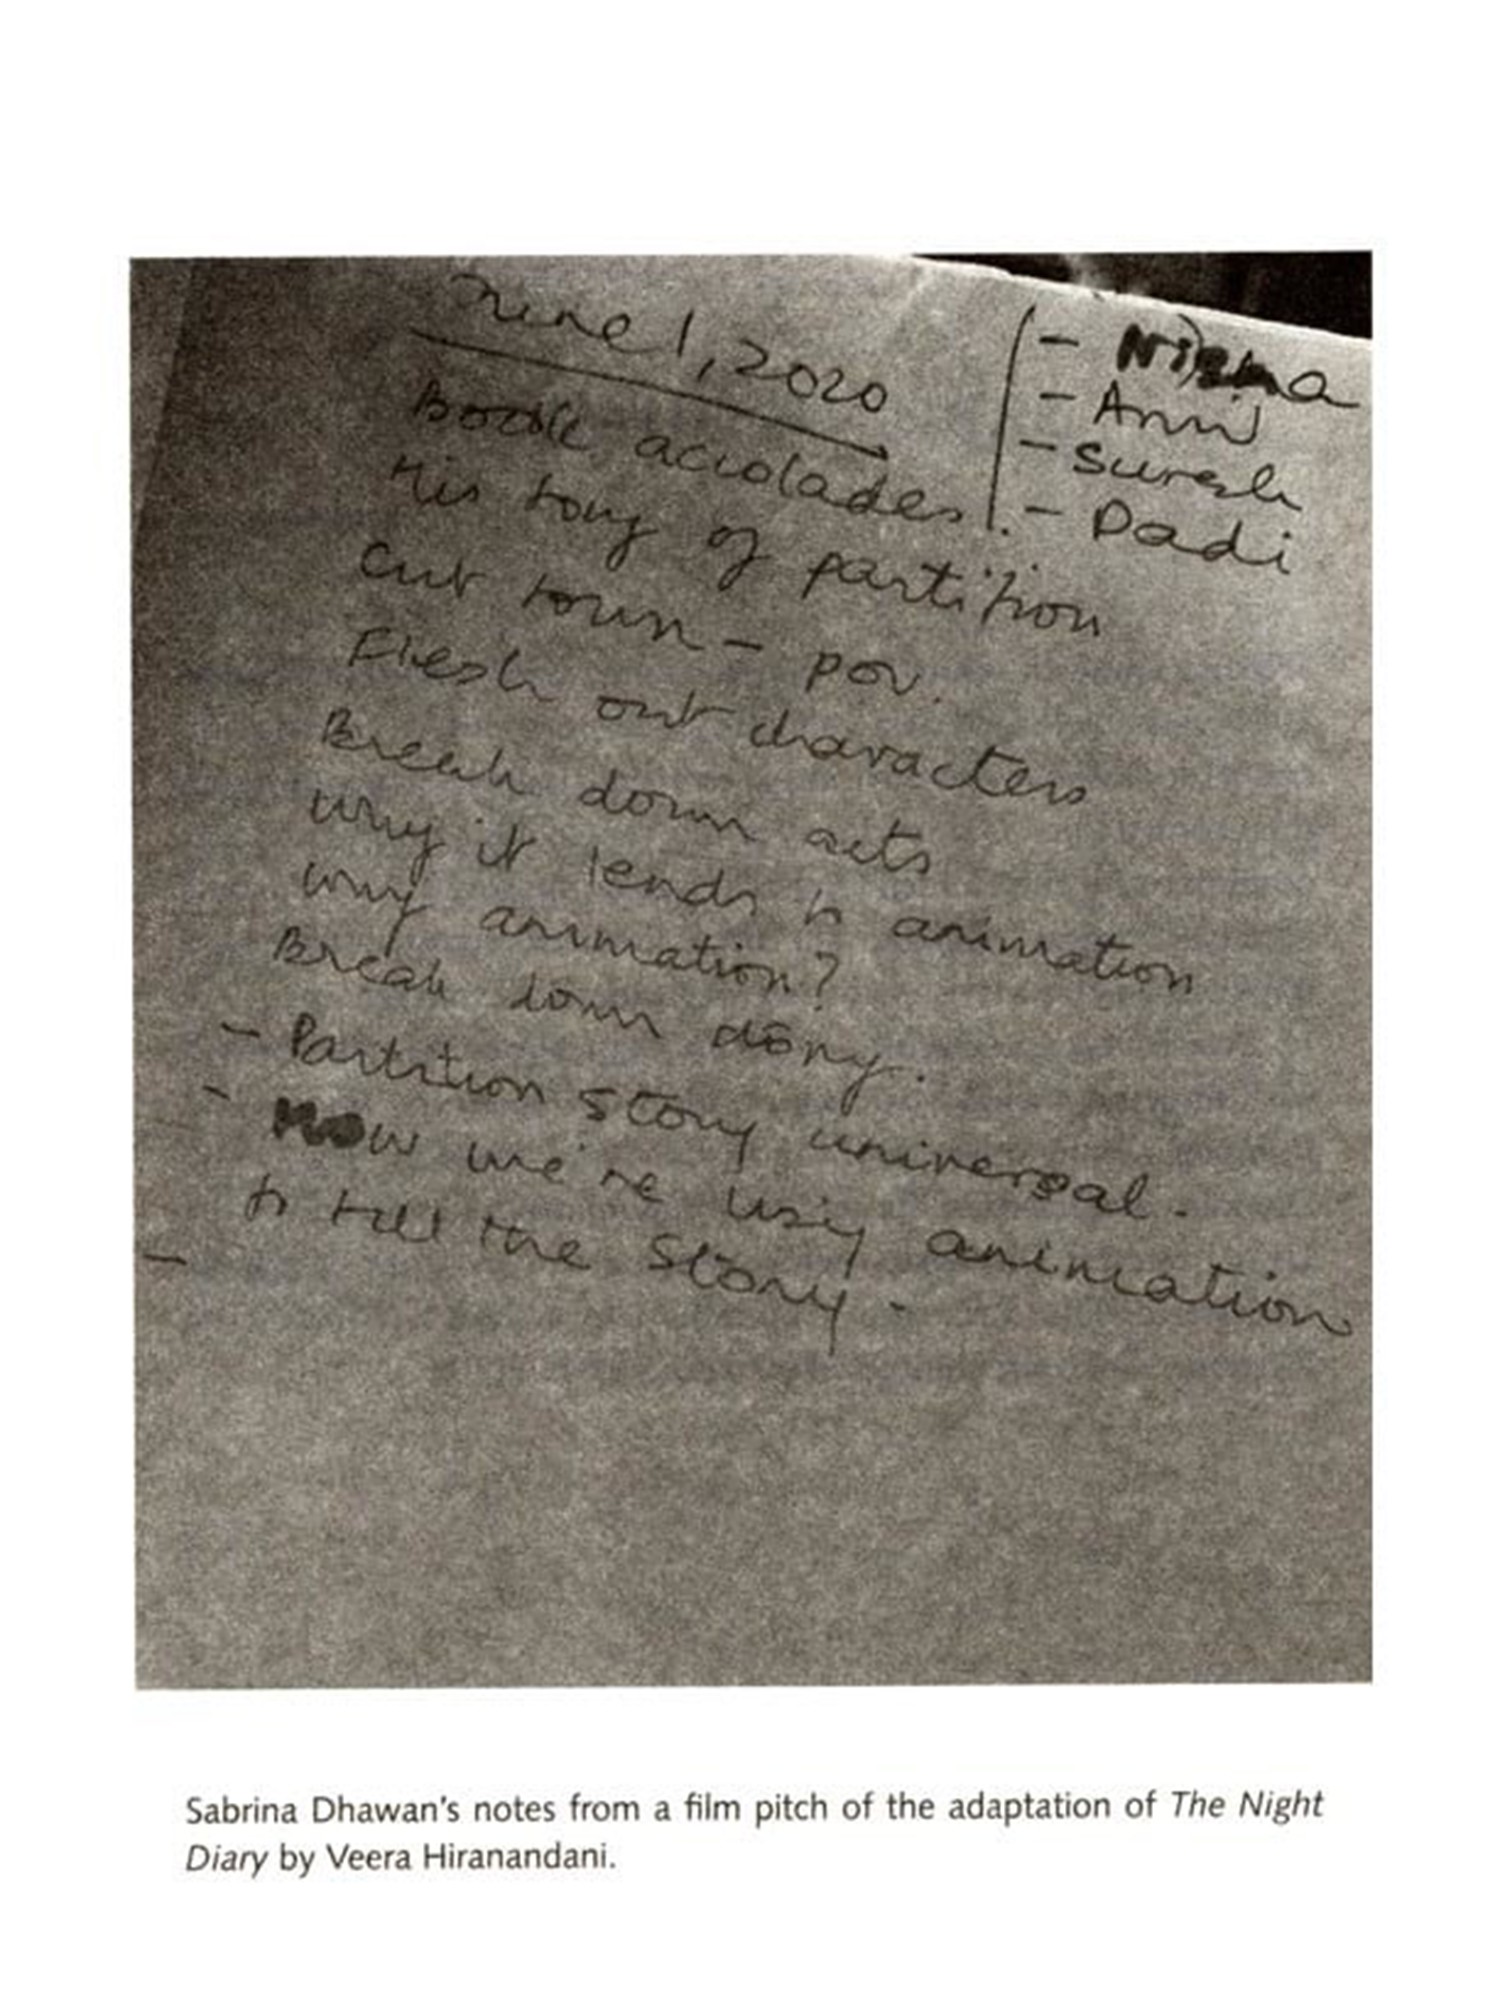 June 1, 2020
- Nisha
- Anil
- Suresh
- Dadi
Book accolades.
History of partition
Cut town - pov.
Flesh out characters
Break down acts
why it lends to animation
why animation?
Break down story.
- Partition story universal.
- How we're using animation
to tell the story.
-
Sabrina Dhawan's notes from a film pitch of the adaptation of The Night
Diary by Veera Hiranandani.